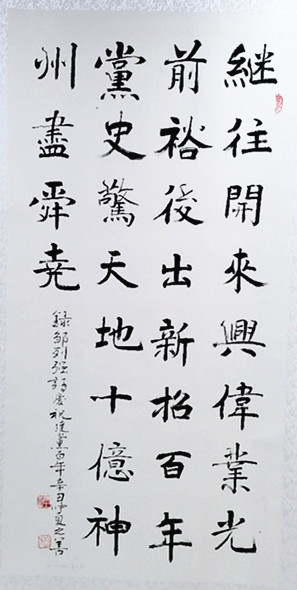 継往開來興偉業光
前裕後出新招百年
黨史驚天地十億神
州盡舜堯
録邹列强詩慶祝建黨百年辛丑仲夏之善